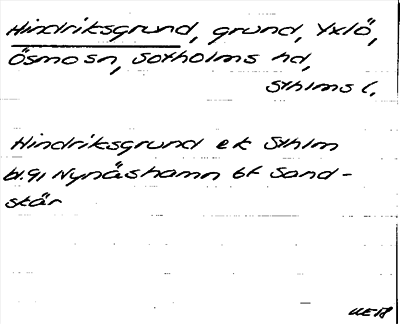 Hindriksgrund, grund, Yxlö,
Ösmo sn, Sotholms hd,
Sthlms l.
Hindriksgrund ek Sthlm
bl.91 Nynäshamn bf Sand-
skär